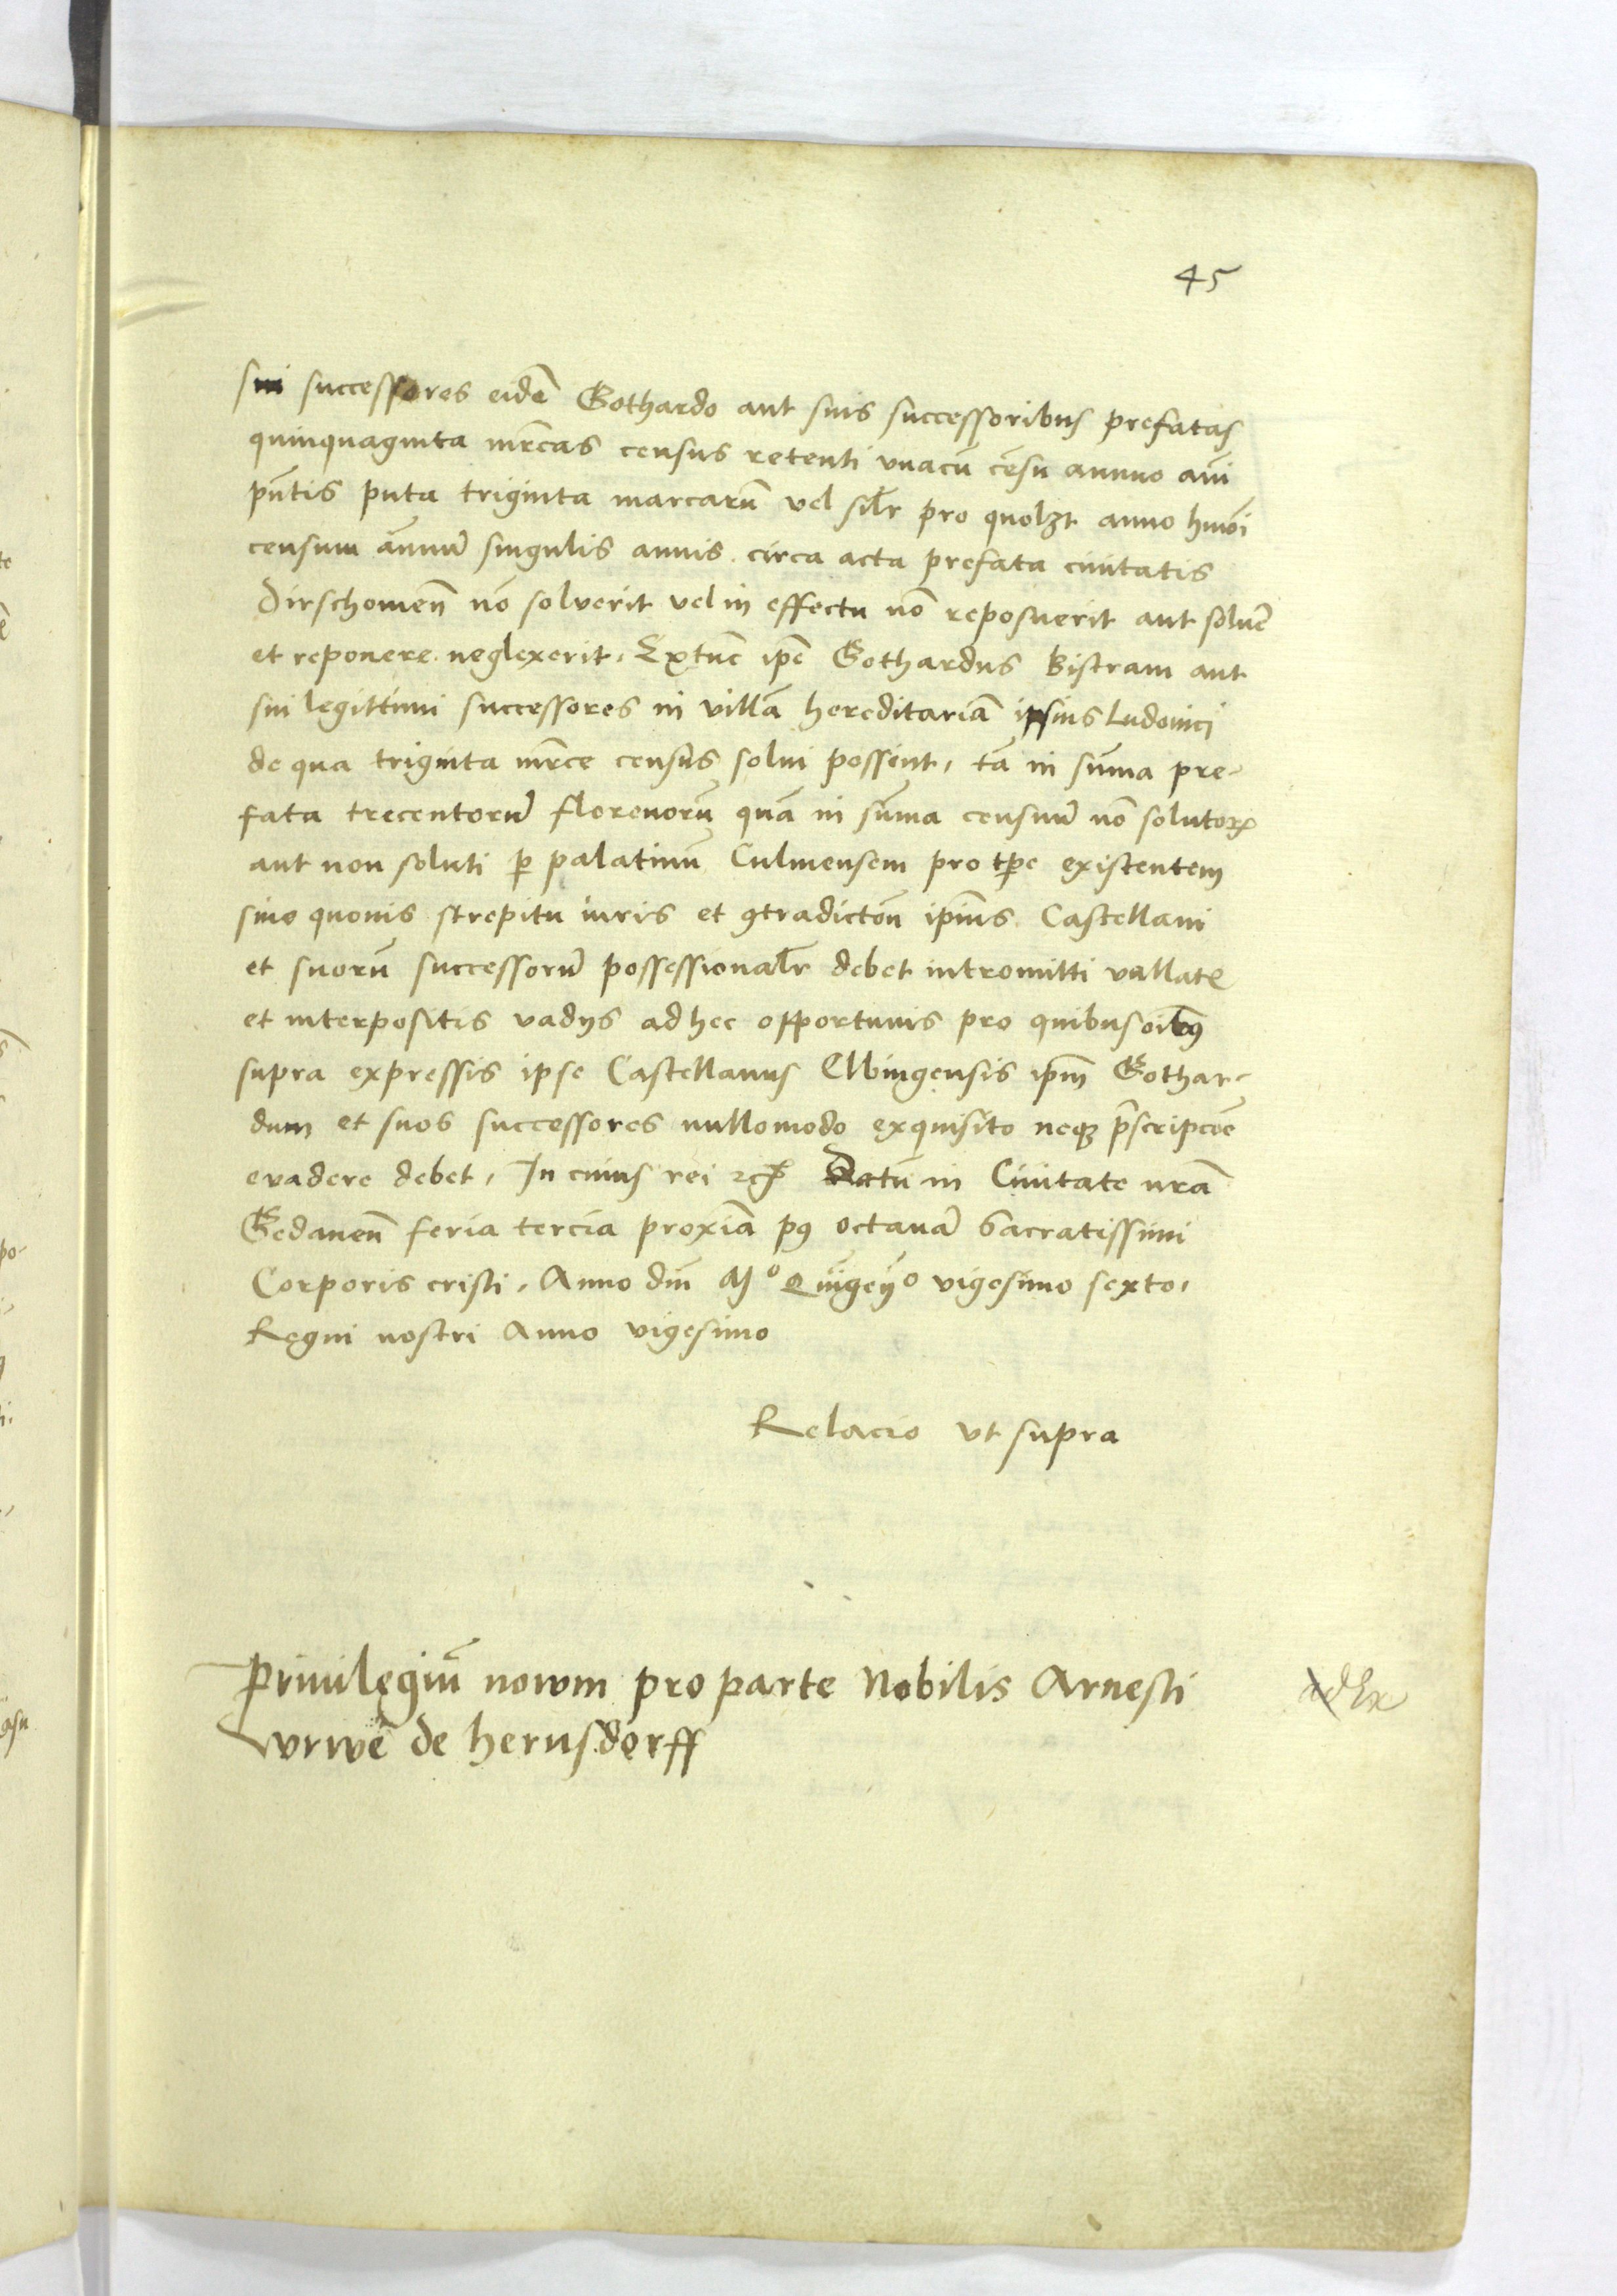 45
sui successores eidē Gothardo aut suis successoribus prefatas
quinquaginta mr̄cas census retenti vnacū cēsu annuo anni
pn̄tis puta triginta marcarū vel silr̄ pro quolꝫt anno hmōi
censum annuū singulis annis circa acta prefata ciuitatis
Dirschouien̄ nō solverit vel in effectu nō reposuerit aut soluē
et reponere neglexerit, Extūc ipē Gothardus Bistram aut
sui legittimi successores in villā hereditariā ipsius Ludouici
de qua triginta mr̄ce census solui possint, tā in sūma pre-
fata trecentorū florenorū quā in sūma censuū nō solutoꝝ
aut non soluti ꝑ palatinū Culmensem pro tꝑe existentem
sine quouis strepitu iuris et ꝯtradictōn ipīus Castellani
et suorū successorū possessionalr̄ debet intromitti vallate
et interpositis vadijs ad hec opportunis pro quibus oībꝰ
supra expressis ipse Castellanus Elbingensis ipm̄ Gothar-
dum et suos successores nullomodo exquisito neqꝫ p̄scripcōe
evadere debet, In cuius rei Datū in Ciuitate nr̄a
Gedanen̄ feria tercia proxīa pꝰ octauā Sacratissimi
Corporis cristi, Anno dni Mº Quīgenº vigesimo sexto,
Regni nostri Anno vigesimo
Relacio vt supra
Priuilegiū nowm pro parte Nobilis Arnesti
vrwē de hernsdorff